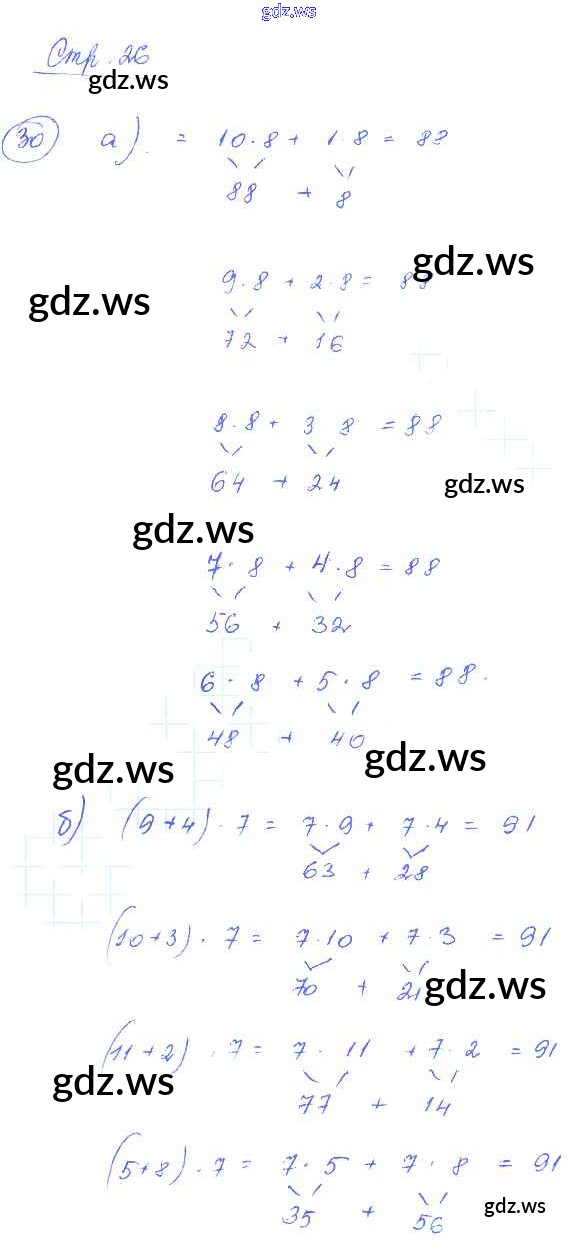 gdz.ws
Стр. 26
gdz.ws
30 а) = 10·8 + 1·8 = 88
88 + 8
gdz.ws
9·8 + 2·8 = 88
gdz.ws
72 + 16
8·8 + 3 8 = 88
64 + 24
gdz.ws
gdz.ws
7·8 + 4·8 = 88
56 + 32
6·8 + 5·8 = 88.
48 + 40
gdz.ws
gdz.ws
б) (9+4)·7 = 7·9 + 7·4 = 91
63 + 28
(10+3)·7 = 7·10 + 7·3 = 91
70 + 21
gdz.ws
(11+2)·7 = 7·11 + 7·2 = 91
gdz.ws
77 + 14
(5+8)·7 = 7·5 + 7·8 = 91
35 + 56
gdz.ws
gdz.ws